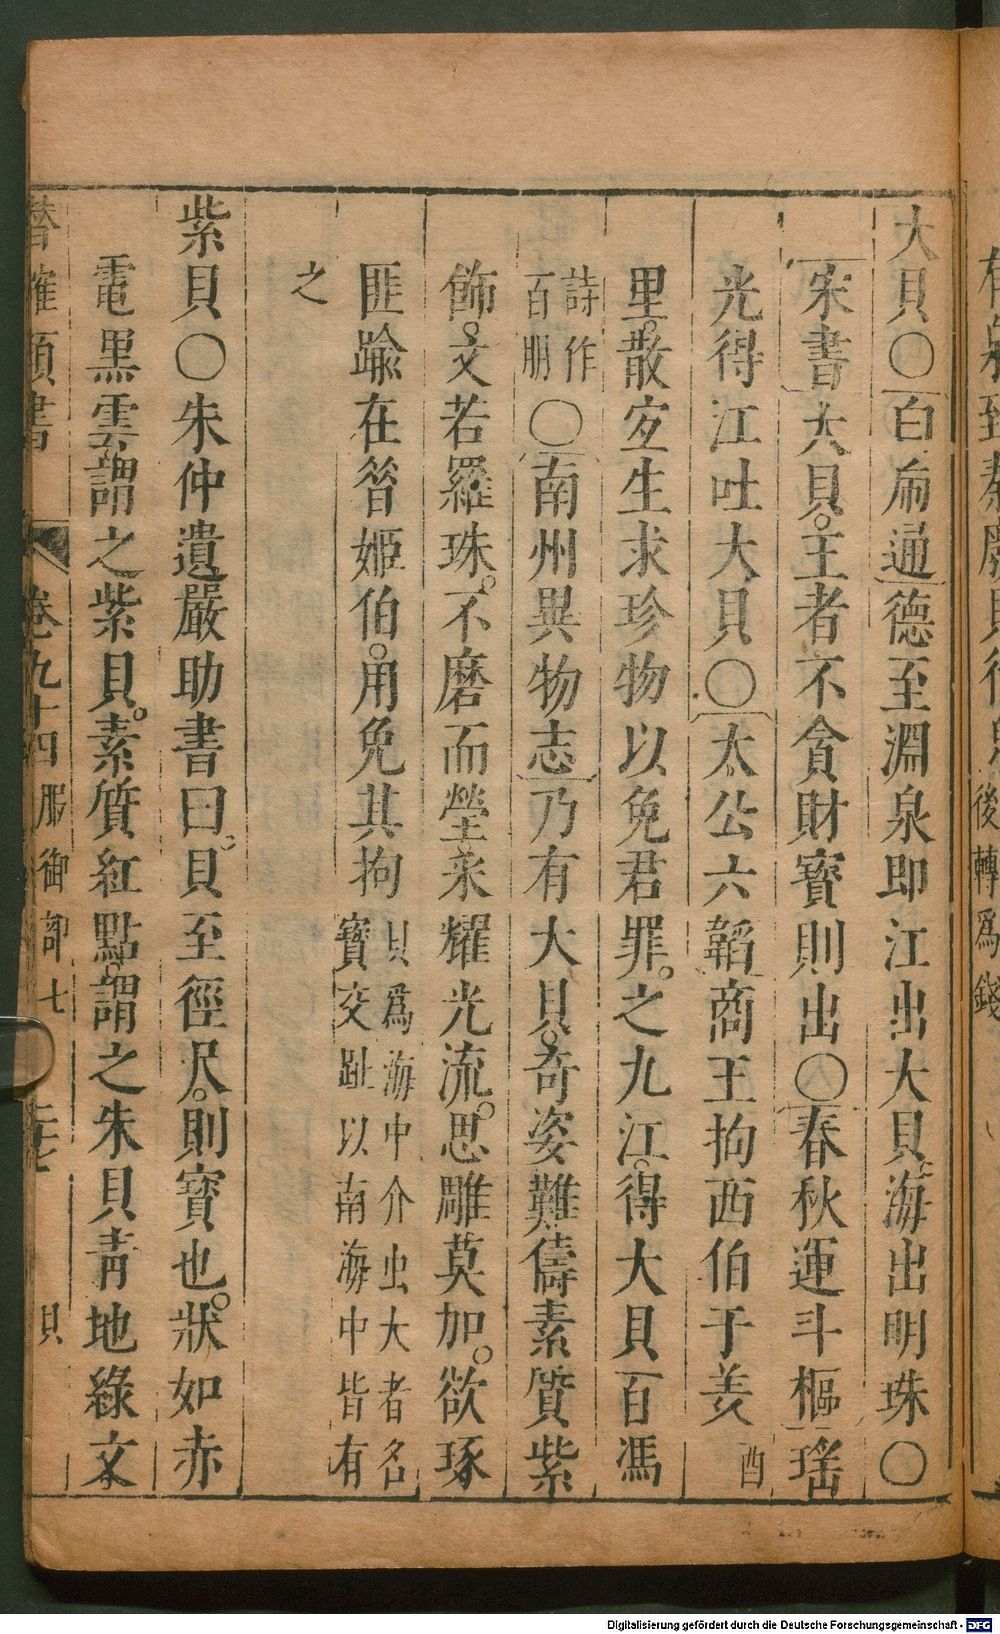 大貝〇白虎通德至淵泉即江出大貝海出明珠〇
宋書大貝王者不貪財寶則出〇春秋運斗樞瑤
光得江吐大貝〇太公六韜商王拘西伯于羑酉
里散宜生求珍物以免君罪之九江得大貝百馮
詩作百朋〇南州異物志乃有大貝奇姿難儔素質紫
飾文若羅珠不磨而瑩采耀光流思雕莫加欲琢
匪踰在昔姬伯用免其拘貝爲海中介虫大者名寶交趾以南海中皆有
之
紫貝〇朱仲遺嚴助書曰貝至徑尺則寶也狀如赤
電黑雲謂之紫貝素質紅點謂之朱貝靑地綠文
潛確類書 卷九十四服御部七 貝
後轉爲錢
Digitalisierung gefördert durch die Deutsche Forschungsgemeinschaft - DFG